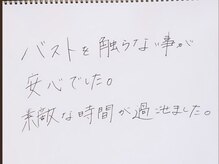 バストを触らない事が
安心でした。
素敵な時間が過ごせました。